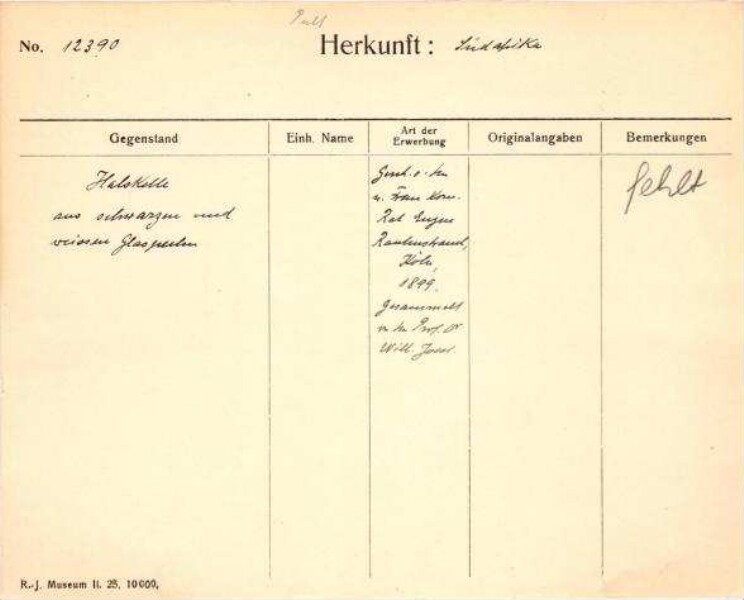 Pult
No. 12390 Herkunft: Südafrika
Gegenstand Einh. Name Art der Erwerbung Originalangaben Bemerkungen
Halskette
aus schwarzen und
weissen Glasperlen
Gesch. v. Hn
u. Frau Kom.
Rat Eugen
Rautenstrauch,
Köln,
1899.
Gesammelt
v. Hn Prof. Dr
Wilh. Joest.
fehlt
R.-J. Museum II. 25, 10000,